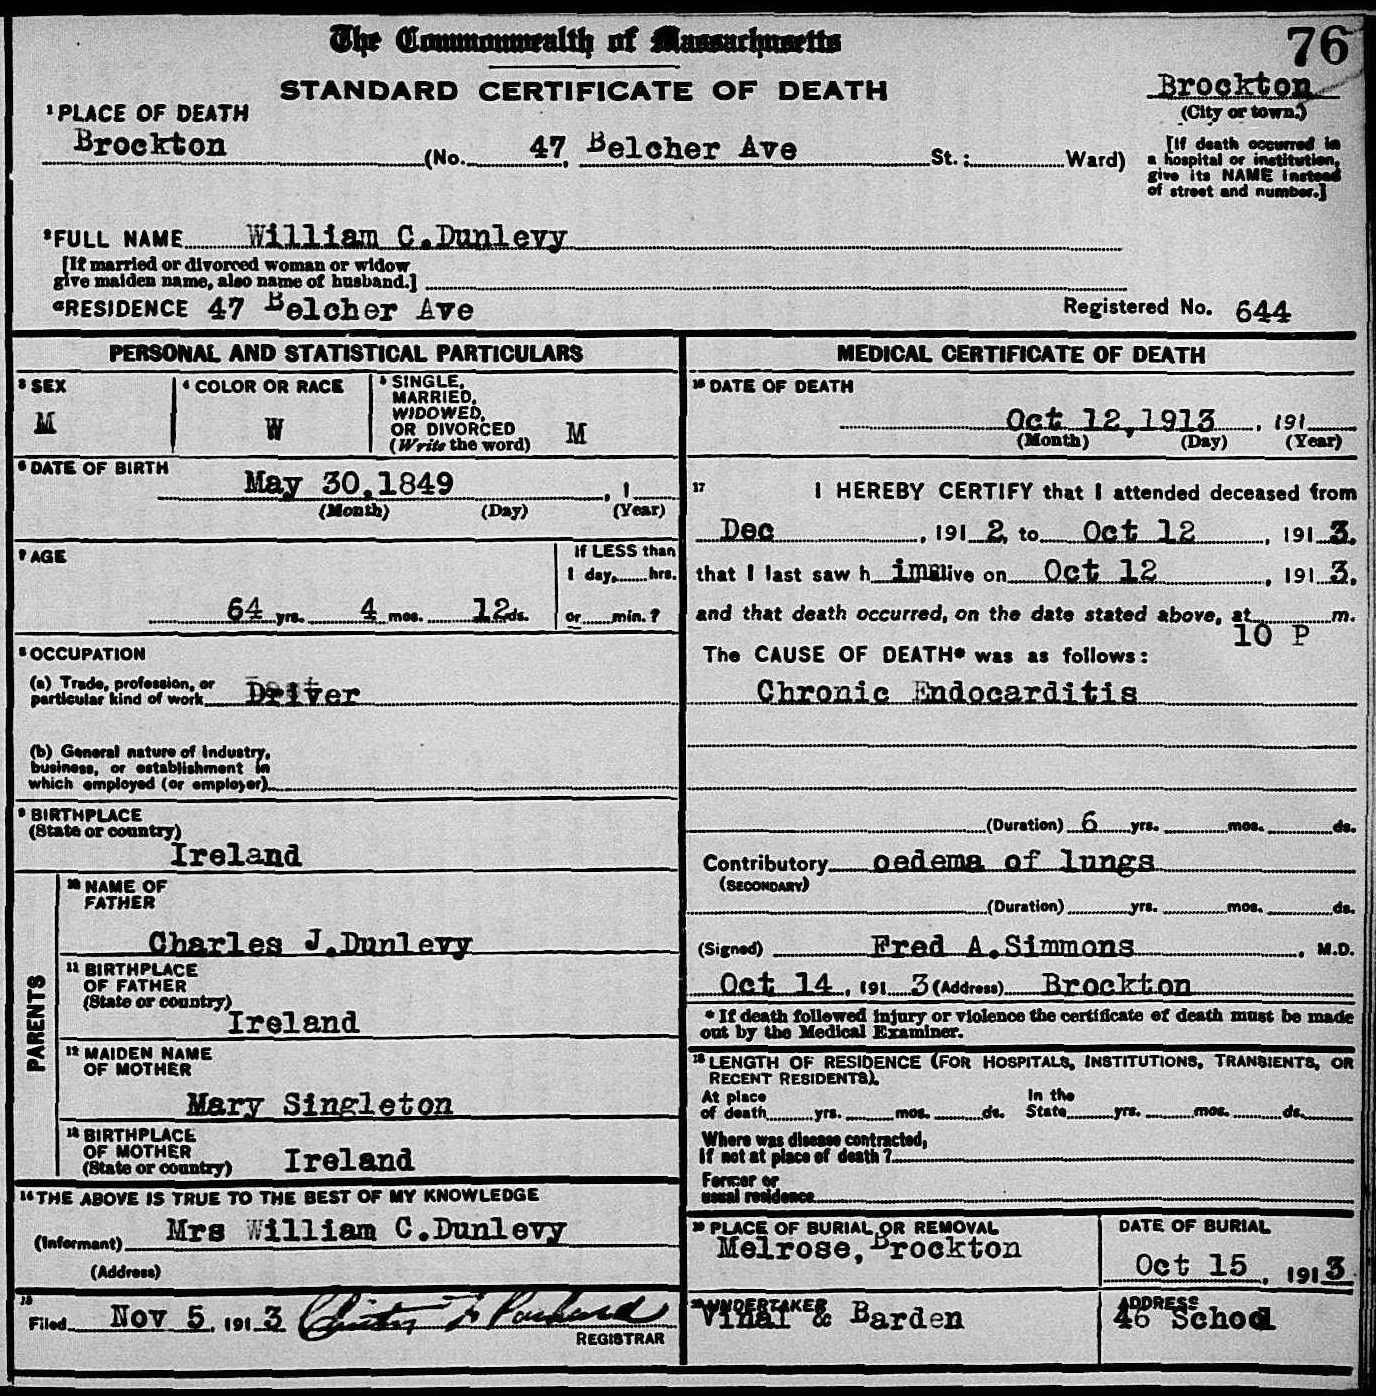 The Commonwealth of Massachusetts
76
STANDARD CERTIFICATE OF DEATH
Brockton
(City or town.)
1 PLACE OF DEATH
Brockton (No. 47, Belcher Ave St.; Ward)
[If death occurred in
a hospital or institution,
give its NAME instead
of street and number.]
2 FULL NAME William C.Dunlevy
[If married or divorced woman or widow
give maiden name, also name of husband.]
RESIDENCE 47 Belcher Ave
Registered No. 644
PERSONAL AND STATISTICAL PARTICULARS
3 SEX
M
4 COLOR OR RACE
W
5 SINGLE,
MARRIED,
WIDOWED,
OR DIVORCED
(Write the word) M
6 DATE OF BIRTH
May 30,1849 , 1
(Month) (Day) (Year)
7 AGE
64 yrs. 4 mos. 12 ds.
If LESS than
1 day, hrs.
or min.?
8 OCCUPATION
(a) Trade, profession, or
particular kind of work Driver
(b) General nature of industry,
business, or establishment in
which employed (or employer)
9 BIRTHPLACE
(State or country)
Ireland
PARENTS
10 NAME OF
FATHER
Charles J.Dunlevy
11 BIRTHPLACE
OF FATHER
(State or country)
Ireland
12 MAIDEN NAME
OF MOTHER
Mary Singleton
13 BIRTHPLACE
OF MOTHER
(State or country) Ireland
14 THE ABOVE IS TRUE TO THE BEST OF MY KNOWLEDGE
(Informant) Mrs William C.Dunlevy
(Address)
15
Filed Nov 5, 191 3 REGISTRAR
MEDICAL CERTIFICATE OF DEATH
16 DATE OF DEATH
Oct 12,1913 , 191
(Month) (Day) (Year)
17 I HEREBY CERTIFY that I attended deceased from
Dec , 191 2, to Oct 12 , 191 3,
that I last saw h im alive on Oct 12 , 191 3,
and that death occurred, on the date stated above, at m.
10 P
The CAUSE OF DEATH* was as follows:
Chronic Endocarditis
(Duration) 6 yrs. mos. ds.
Contributory oedema of lungs
(SECONDARY)
(Duration) yrs. mos. ds.
(Signed) Fred A.Simmons , M.D.
Oct 14, 191 3 (Address) Brockton
* If death followed injury or violence the certificate of death must be made
out by the Medical Examiner.
18 LENGTH OF RESIDENCE (FOR HOSPITALS, INSTITUTIONS, TRANSIENTS, OR
RECENT RESIDENTS).
At place In the
of death yrs. mos. ds. State yrs. mos. ds.
Where was disease contracted,
If not at place of death?
Former or
usual residence
19 PLACE OF BURIAL OR REMOVAL
Melrose, Brockton
DATE OF BURIAL
Oct 15, 191 3
20 UNDERTAKER
Vinal & Barden
ADDRESS
46 School